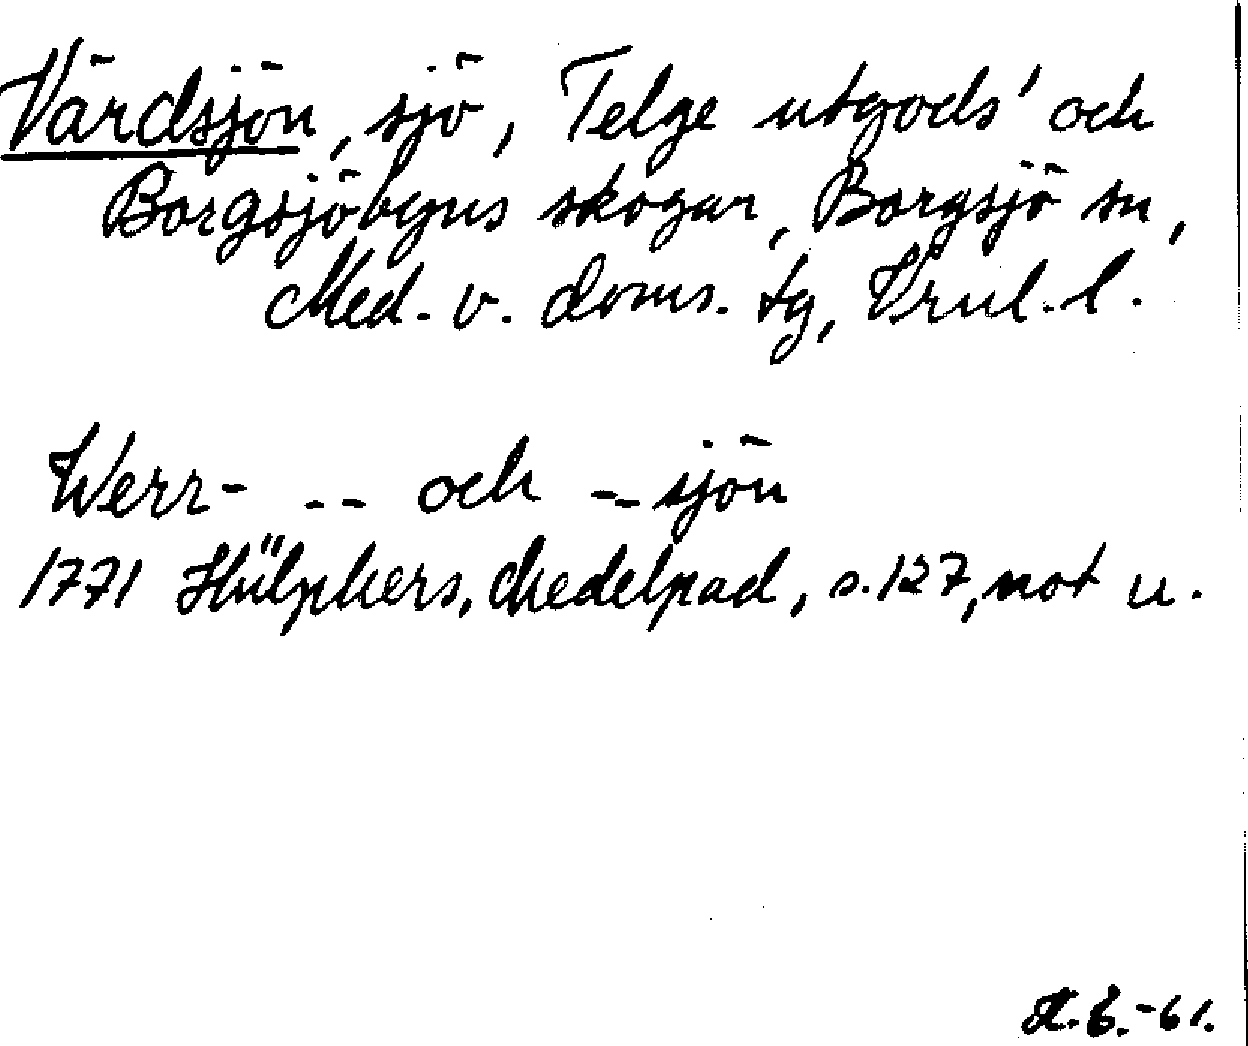 Värdsjön, sjö, Telge utgods' och
Borgsjöbyns skogar, Borgsjö sn,
Med. v. doms. tg, Vrnl. l.
Werr- -- och --sjön
1771 Hülphers, Medelpad, s. 127, not u.
H.E.-61.